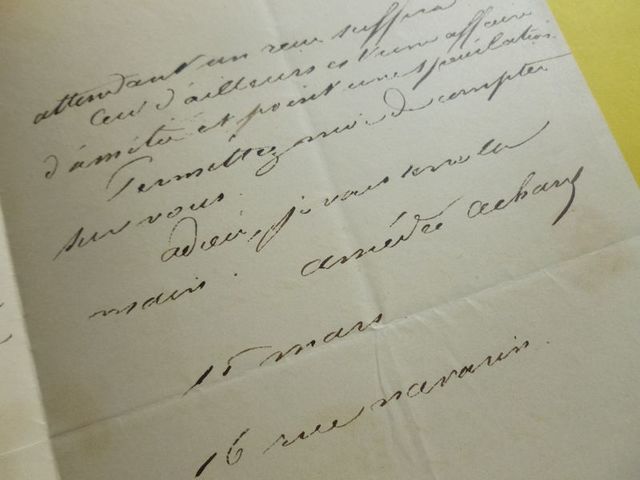 attendant un reçu suffira
Ceci d'ailleurs est une affaire
d'amitié et point une spéculation.
Permettez moi de compter
sur vous.
adieu, je vous serre la
main. amédée achard
15 mars
16 rue navarin.